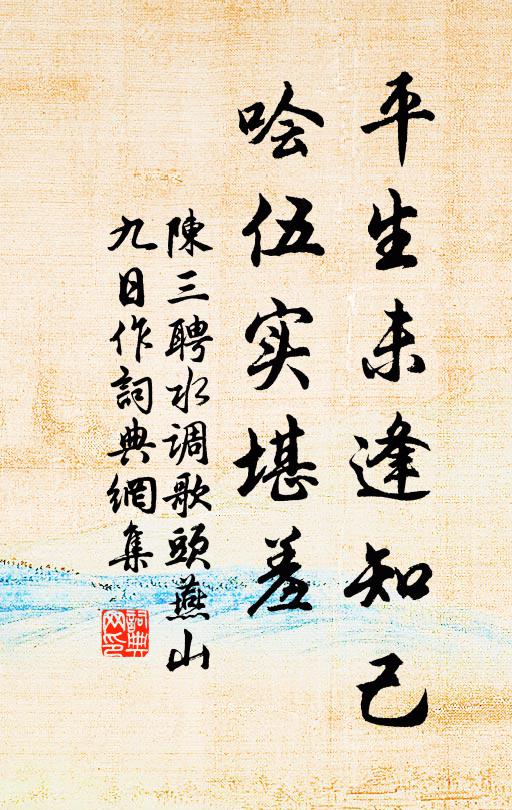 平生未逢知己
噲伍实堪羞
陳三聘水调歌頭燕山
九日作詞典網集
詞典
网印